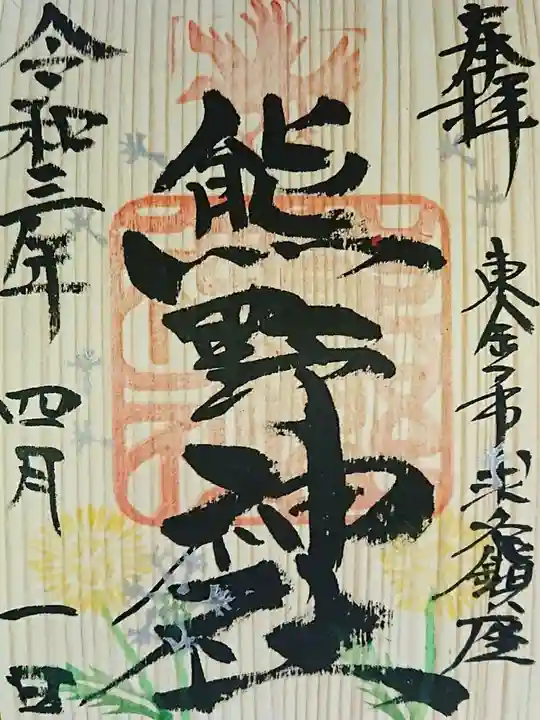 奉拝
東金市求名鎮座
熊野神社
令和三年
四月
一日